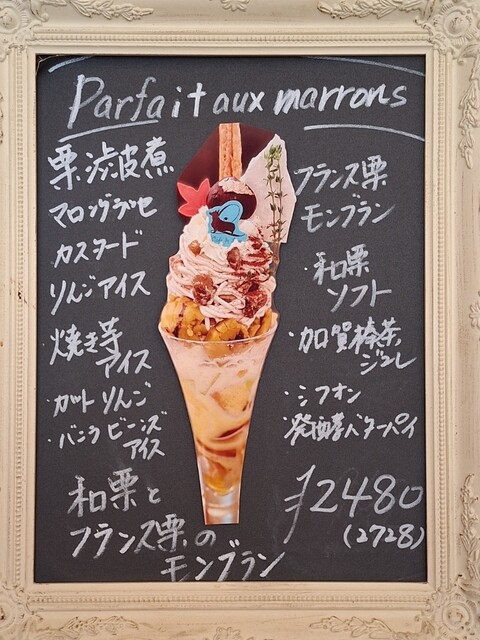 Parfait aux marrons
栗渋皮煮
マロングラッセ
カスタード
りんごアイス
焼き芋
アイス
・カットりんご
・バニラビーンズ
アイス
フランス栗
モンブラン
・和栗
ソフト
・加賀棒茶
ジュレ
・シフォン
・発酵バターパイ
和栗と
フランス栗の
モンブラン
¥2480
(2728)